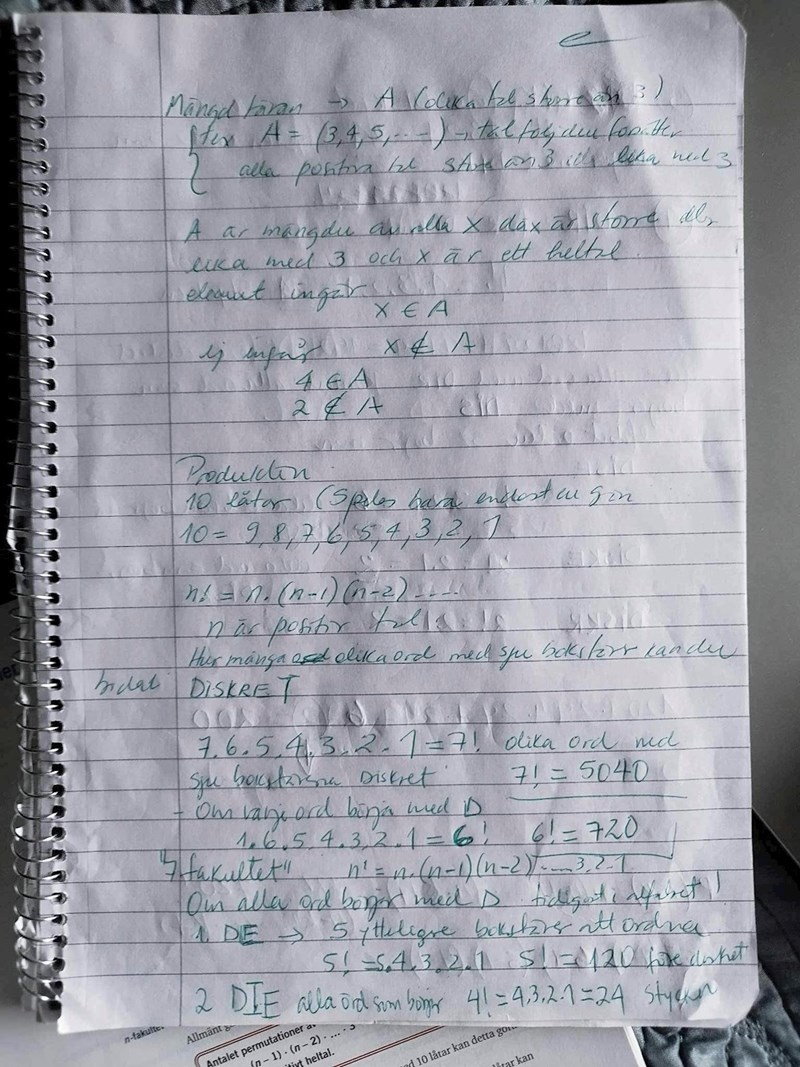 e
Mängd läran → A (olika tal större än 3)
A = (3,4,5,...) → talföljden fortsätter
alla positiva tal större än 3 lika med 3
A är mängden av alla x där x är större
lika med 3 och x är ett heltal
element ingår
x ∈ A
ej ingår x ∉ A
4 ∈ A
2 ∉ A
Produkten
10 låtar (Spelas bara endast en gång
10 = 9,8,7,6,5,4,3,2,1
n! = n.(n-1)(n-2) ....
n är positiv tal
Hur många olika ord med sju bokstäver kan du
bidal DISKRET
7.6.5.4.3.2.1=7! olika ord med
sju bokstäverna Diskret 7! = 5040
- Om varje ord börja med D
1.6.5.4.3.2.1=6! 6! = 720
"fakultet" n! = n.(n-1)(n-2) .... 3,2.1
Om alla ord börjar med D tidigast i alfabet!
1. DE → 5 ytterligare bokstäver att ordna
5! =5.4.3.2.1 5! = 120 före diskret
2 DIE alla ord som börjar 4! = 4,3.2.1=24 stycken
n-fakultet
Allmänt
Antalet permutationer a
(n − 1) · (n − 2) · ... · 3
tivt heltal.
d 10 låtar kan detta gör
tar kan